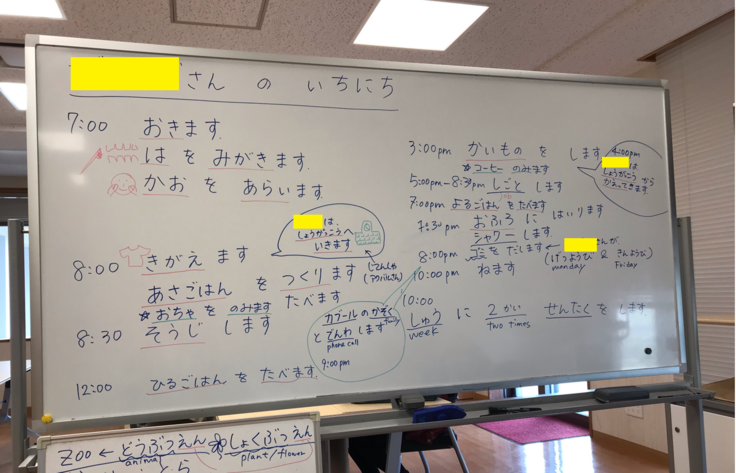 さん の いちにち
7:00 おきます
はをみがきます
かおをあらいます
8:00 きがえます
あさごはんをつくります
たべます
☆おちゃをのみます
8:30 そうじします
12:00 ひるごはんをたべます
は、
しょうがっこうへ
いきます
じてんしゃ
カブールのかぞく
とでんわします
phone call
9:00pm
3:00pm かいものをします
☆コーヒーのみます
4:00pm
は
しょうがっこうから
かえってきます
5:00pm-8:30pm しごとします
7:00pm よるごはんをたべます
おふろにはいります
シャワーします
8:00pm をだします←
さんが
(げつようび & きんようび)
monday Friday
10:00pm ねます
10:00
しゅうに2かいせんたくをします
week two times
ZOO ← どうぶつえん しょくぶつえん
animal plant/flower